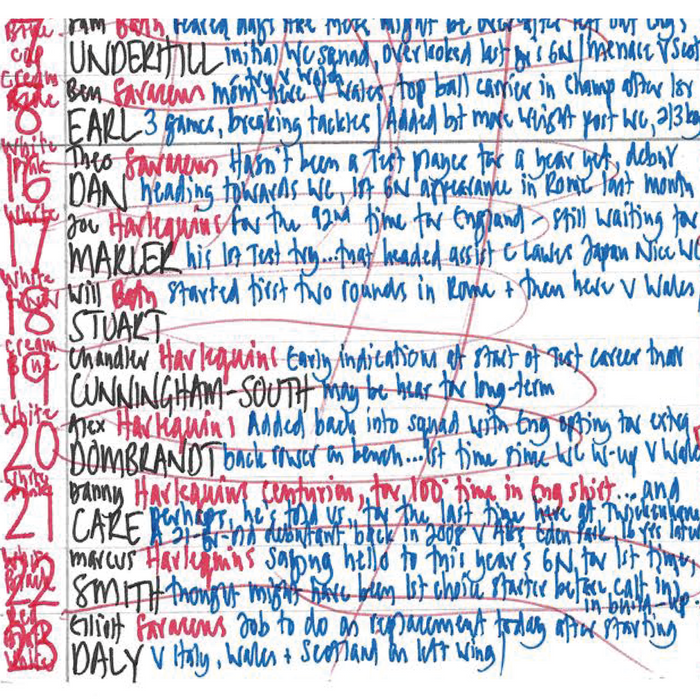 7 Sam Bath feared days like these might be over after
UNDERHILL initial WC squad, overlooked last yr's 6N / menace v Scot
8 Ben Saracens mom here v Wales top ball carrier in champ after 1st
EARL 3 games, breaking tackles / Added bit more weight post WC, 2/3
White
16 Theo Saracens Hasn't been a Test player for a year yet, debut
DAN heading towards WC, 1st 6N appearance in Rome last month
White
17 Joe Harlequins for the 92nd time for England - still waiting for
MARLER his 1st Test try...that headed assist C Lawes Japan Nice WC
White
18 Will Bath started first two rounds in Rome + then here v Wales
STUART
Cream
19 Chandler Harlequins Early indications at start of Test career that
CUNNINGHAM-SOUTH may be here for long-term
White
20 Alex Harlequins Added back into squad with Eng opting for extra
DOMBRANDT back rower on bench...1st time since WC w-up v Wales
21 Danny Harlequins centurion, for 100th time in Eng shirt...and
CARE perhaps, he's told us, for the last time here at Twickenham
A 21-yr-old debutant back in 2008 v ABs
22 Marcus Harlequins Saying hello to this year's 6N, for 1st time
SMITH thought might have been 1st choice starter before calf inj
in build-up
Red
23 Elliott Saracens Job to do as replacement today after starting
DALY v Italy, Wales + Scotland on left wing